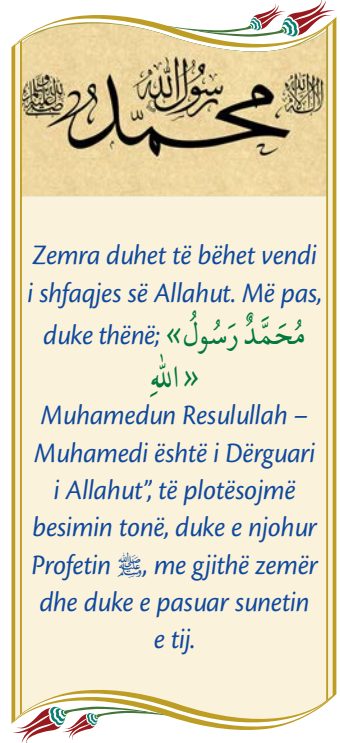 لا إله إلا الله محمد رسول الله صلى الله عليه وسلم
Zemra duhet të bëhet vendi
i shfaqjes së Allahut. Më pas,
duke thënë; «مُحَمَّدٌ رَسُولُ
اللّٰهِ»
Muhamedun Resulullah –
Muhamedi është i Dërguari
i Allahut”, të plotësojmë
besimin tonë, duke e njohur
Profetin ﷺ, me gjithë zemër
dhe duke e pasuar sunetin
e tij.